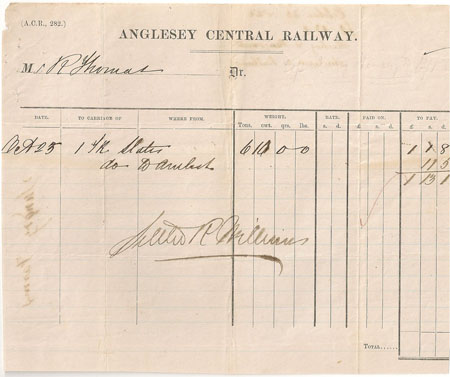 (A.C.R., 282.)
ANGLESEY CENTRAL RAILWAY.
M R Thomas Dr.
DATE. TO CARRIAGE OF WHERE FROM. WEIGHT. RATE. PAID ON. TO PAY.
Tons. cwt. qrs. lbs. s. d. £ s. d. £ s. d.
Oct 25 1 Slates 6 10 0 0 1 1 8
do 11 5
1 13 1
R Williams
TOTAL......